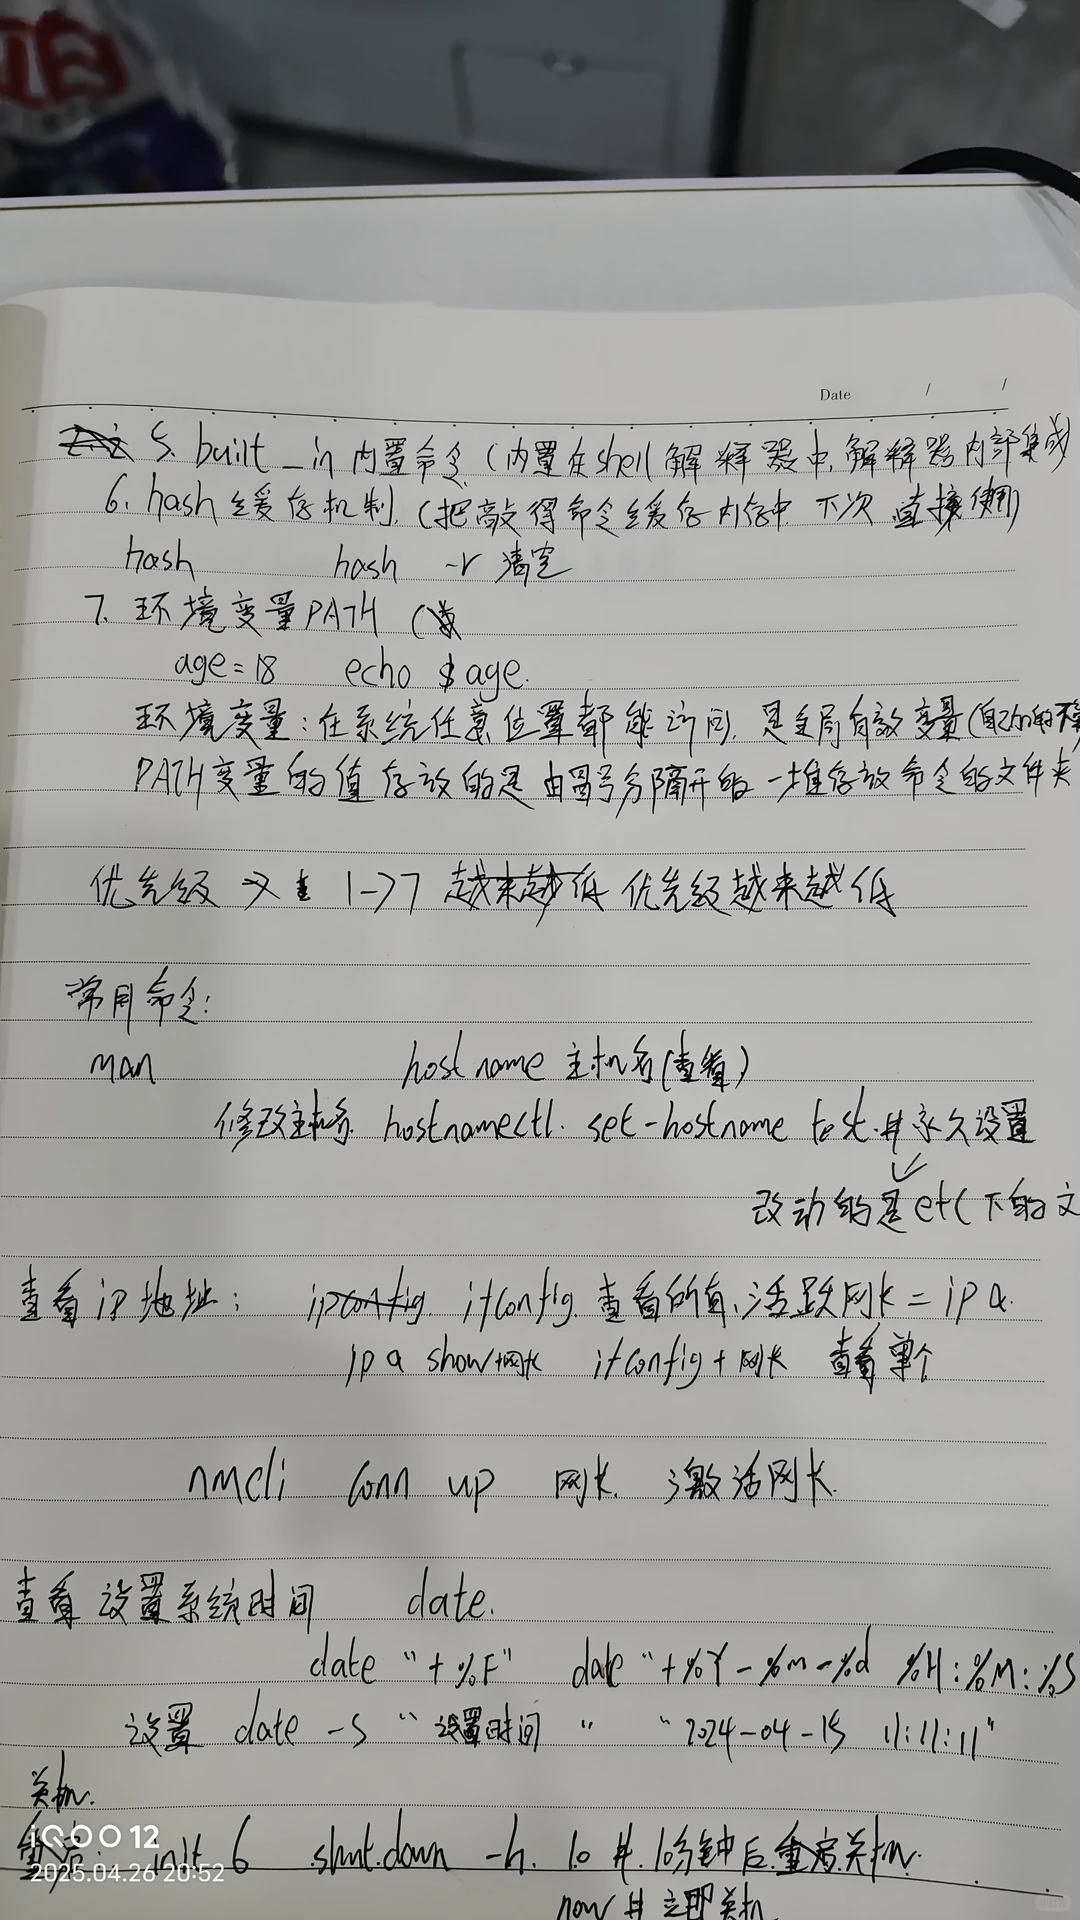 Date / /
5. built_in 内置命令 (内置在shell解释器中, 解释器内部集成
6. hash 缓存机制. (把敲得命令缓存内存中 下次 直接使用)
hash hash -r 清空
7. 环境变量PATH (
age=18 echo $age.
环境变量: 在系统任意位置都能访问, 是全局有效变量(自己的的不
PATH变量的值存放的是由冒号分隔开的一堆存放命令的文件夹
优先级 1->7 越来越低 优先级越来越低
常用命令:
man hostname 主机名(查看)
修改主机名 hostnamectl. set-hostname test.#永久设置
改动的是etc下的文
查看ip地址: ipconfig. ifconfig. 查看所有、活跃网卡=ip a.
ip a show+网卡 ifconfig+网卡 查看单个
nmcli conn up 网卡. 激活网卡.
查看 设置系统时间 date.
date "+%F" date "+%Y-%m-%d %H:%M:%S
设置 date -s "设置时间" "2024-04-15 11:11:11"
关机.
重启: init 6 shut.down -h. 10 #.10分钟后.重启关机.
now # 立即关机
iQOO 12
2025.04.26 20:52